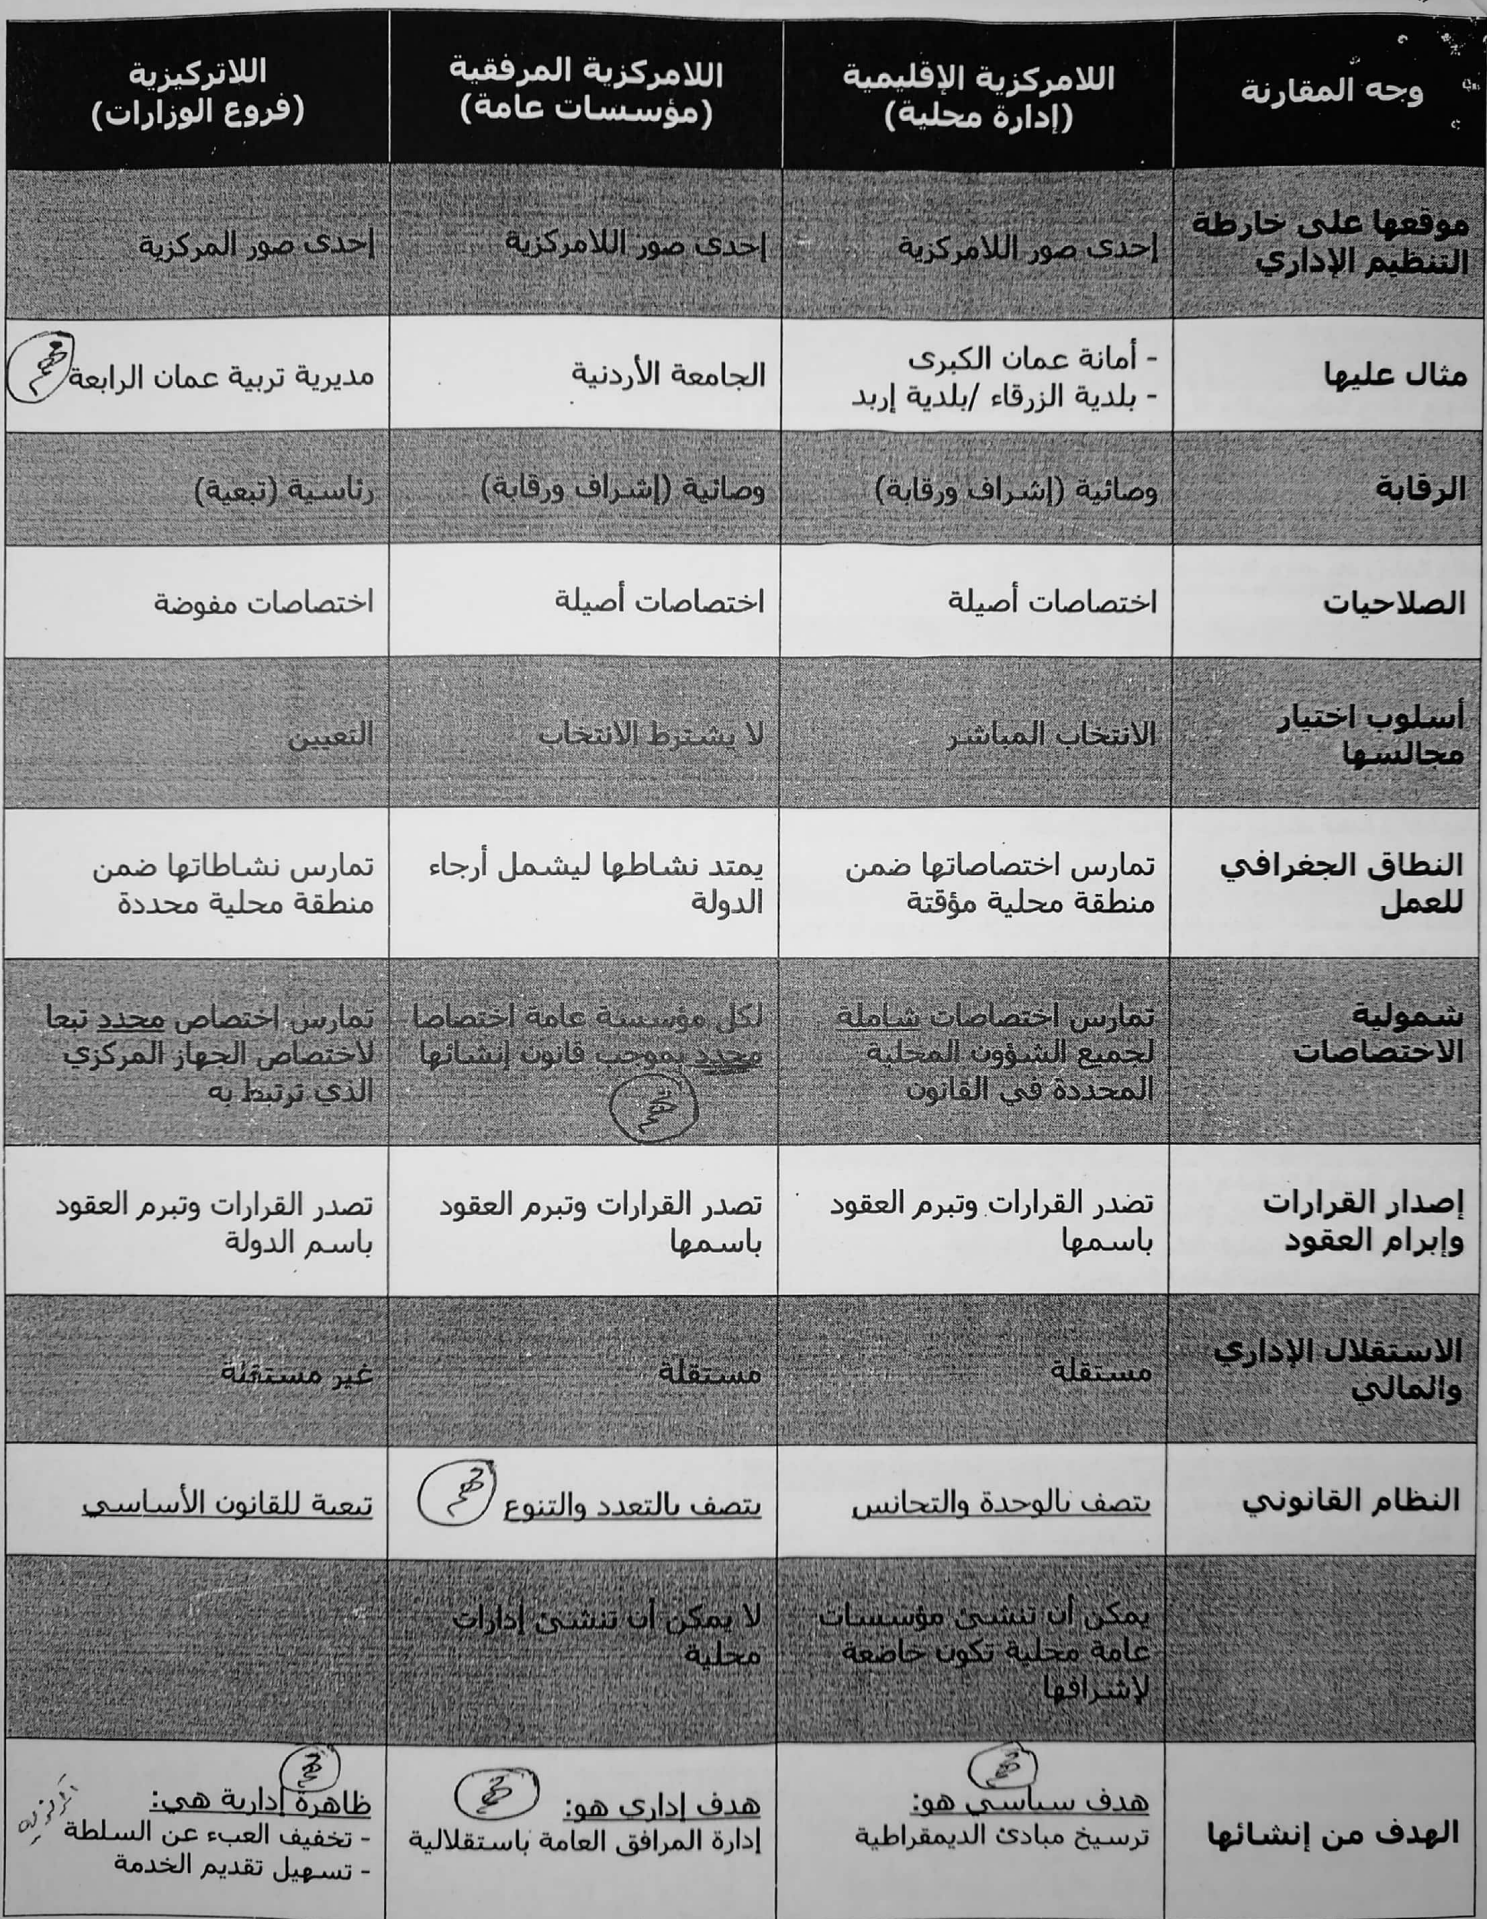 وجه المقارنة
اللامركزية الإقليمية
(إدارة محلية)
اللامركزية المرفقية
(مؤسسات عامة)
اللاتركيزية
(فروع الوزارات)
موقعها على خارطة
التنظيم الإداري
إحدى صور اللامركزية
إحدى صور اللامركزية
إحدى صور المركزية
مثال عليها
- أمانة عمان الكبرى
- بلدية الزرقاء /بلدية إربد
الجامعة الأردنية
مديرية تربية عمان الرابعة
مهم
الرقابة
وصائية (إشراف ورقابة)
وصائية (إشراف ورقابة)
رئاسية (تبعية)
الصلاحيات
اختصاصات أصيلة
اختصاصات أصيلة
اختصاصات مفوضة
أسلوب اختيار
مجالسها
الانتخاب المباشر
لا يشترط الانتخاب
التعيين
النطاق الجغرافي
للعمل
تمارس اختصاصاتها ضمن
منطقة محلية مؤقتة
يمتد نشاطها ليشمل أرجاء
الدولة
تمارس نشاطاتها ضمن
منطقة محلية محددة
شمولية
الاختصاصات
تمارس اختصاصات شاملة
لجميع الشؤون المحلية
المحددة في القانون
لكل مؤسسة عامة اختصاصا
محدد بموجب قانون إنشائها
مهم
تمارس اختصاص محدد تبعا
لاختصاص الجهاز المركزي
الذي ترتبط به
إصدار القرارات
وإبرام العقود
تصدر القرارات وتبرم العقود
باسمها
تصدر القرارات وتبرم العقود
باسمها
تصدر القرارات وتبرم العقود
باسم الدولة
الاستقلال الإداري
والمالي
مستقلة
مستقلة
غير مستقلة
النظام القانوني
يتصف بالوحدة والتجانس
يتصف بالتعدد والتنوع
مهم
تبعية للقانون الأساسي
يمكن أن تنشئ مؤسسات
عامة محلية تكون خاضعة
لإشرافها
لا يمكن أن تنشئ إدارات
محلية
الهدف من إنشائها
مهم
هدف سياسي هو:
ترسيخ مبادئ الديمقراطية
مهم
هدف إداري هو:
إدارة المرافق العامة باستقلالية
مهم
ظاهرة إدارية هي:
- تخفيف العبء عن السلطة
- تسهيل تقديم الخدمة